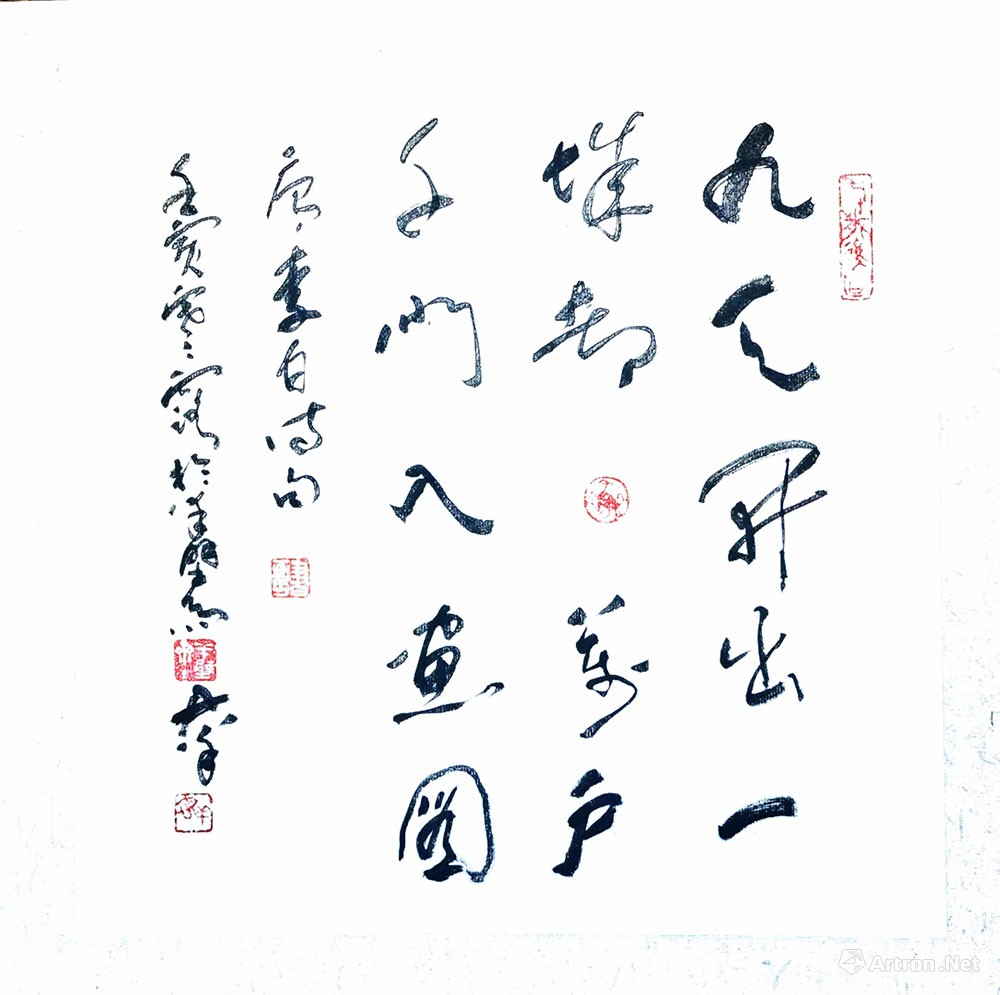 九天開出一
城都萬戶
千門入畫圖
唐李白詩句
壬寅寒露於
Artron.Net